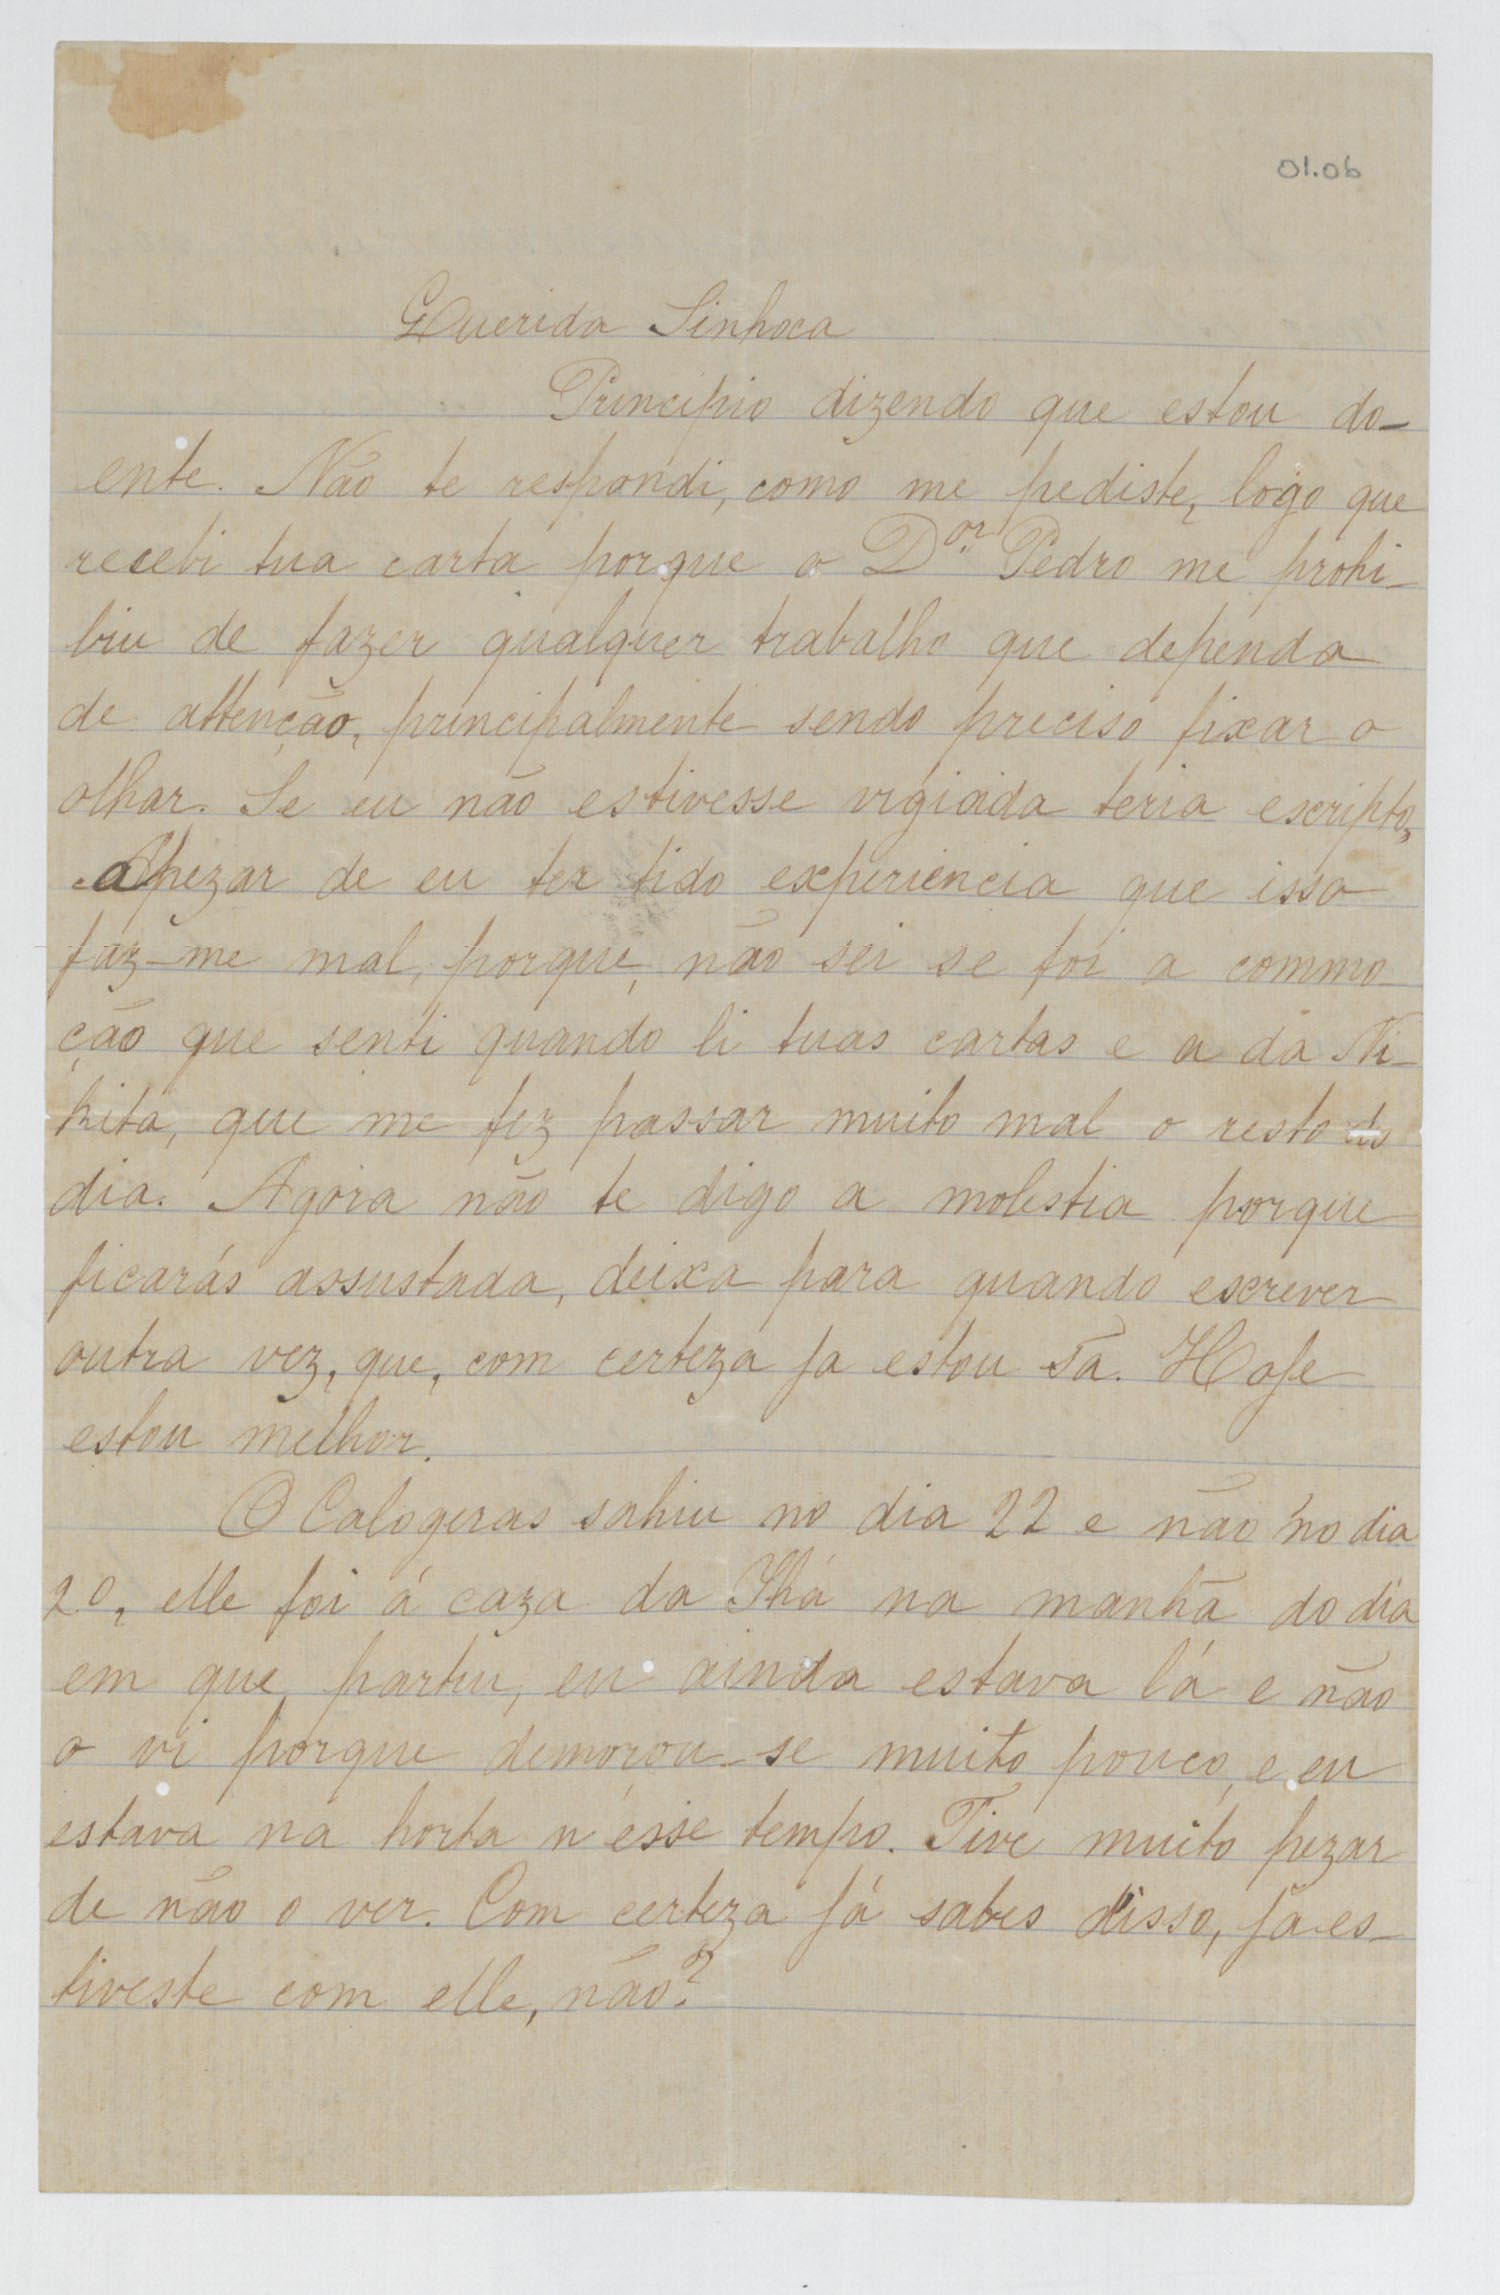 01.06
Querida Sinhoca
Principio dizendo que estou do-
ente. Não te respondi, como me pediste, logo que
recebi tua carta porque o Dor. Pedro me prohi-
biu de fazer qualquer trabalho que dependa
de attenção, principalmente sendo preciso fixar o
olhar. Se eu não estivesse vigiada teria escripto,
apezar de eu ter tido experiencia que isso
faz-me mal, porque, não sei se foi a commo-
ção que senti quando li tuas cartas e a da Ni-
hita, que me fez passar muito mal o resto do
dia. Agora não te digo a molestia porque
ficarás assustada, deixa para quando escrever
outra vez, que, com certeza ja estou sã. Hoje
estou melhor.
O Calogeras sahiu no dia 22 e não no dia
20, elle foi á caza da Ihá na manhã do dia
em que partiu, eu ainda estava lá e não
o vi porque demorou-se muito pouco, e eu
estava na horta n'esse tempo. Tive muito pezar
de não o ver. Com certeza já sabes disso, ja es-
tiveste com elle, não?